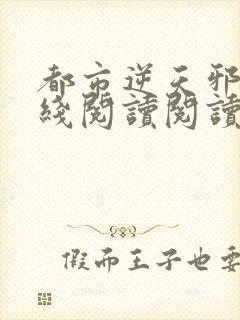 都市逆天邪
綫閱讀閱讀
假而王子也要